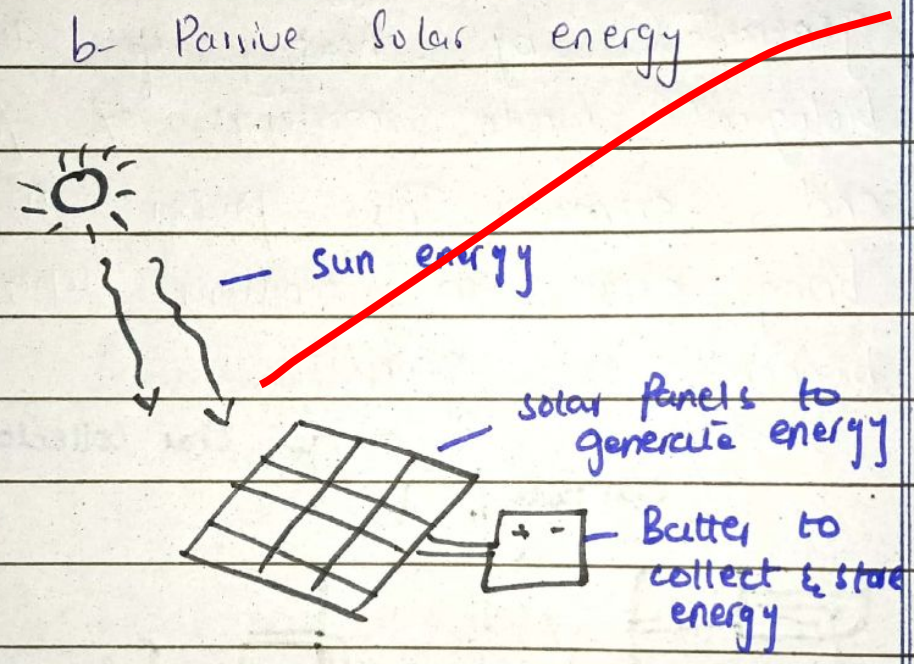 b- Passive Solar energy
sun energy
solar Panels to
generate energy
+ -
Batter to
collect & store
energy